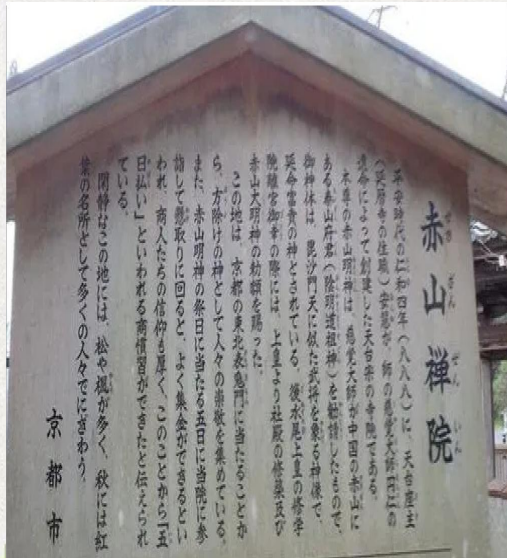 赤山禅院
せき ざん ぜん いん
平安時代の仁和四年（八八八）に、天台座主
（延暦寺の住職）安慧が、師の慈覚大師円仁の
遺命によって創建した天台宗の寺院である。
本尊の赤山明神は、慈覚大師が中国の赤山に
ある泰山府君（陰明道祖神）を勧請したもので、
御神体は、毘沙門天に似た武将を象る神像で、
延命富貴の神とされている。後水尾上皇の修学
院離宮御幸の際には、上皇より社殿の修築及び
赤山大明神の勅額を賜った。
この地は、京都の東北表鬼門に当たることか
ら、方除けの神として人々の崇敬を集めている。
また、赤山明神の祭日に当たる五日に当院に参
詣して懸取りに回ると、よく集金ができるとい
われ、商人たちの信仰も厚く、このことから「五
日払い」といわれる商慣習ができたと伝えられ
ている。
閑静なこの地には、松や楓が多く、秋には紅
葉の名所として多くの人々でにぎわう。
京都市